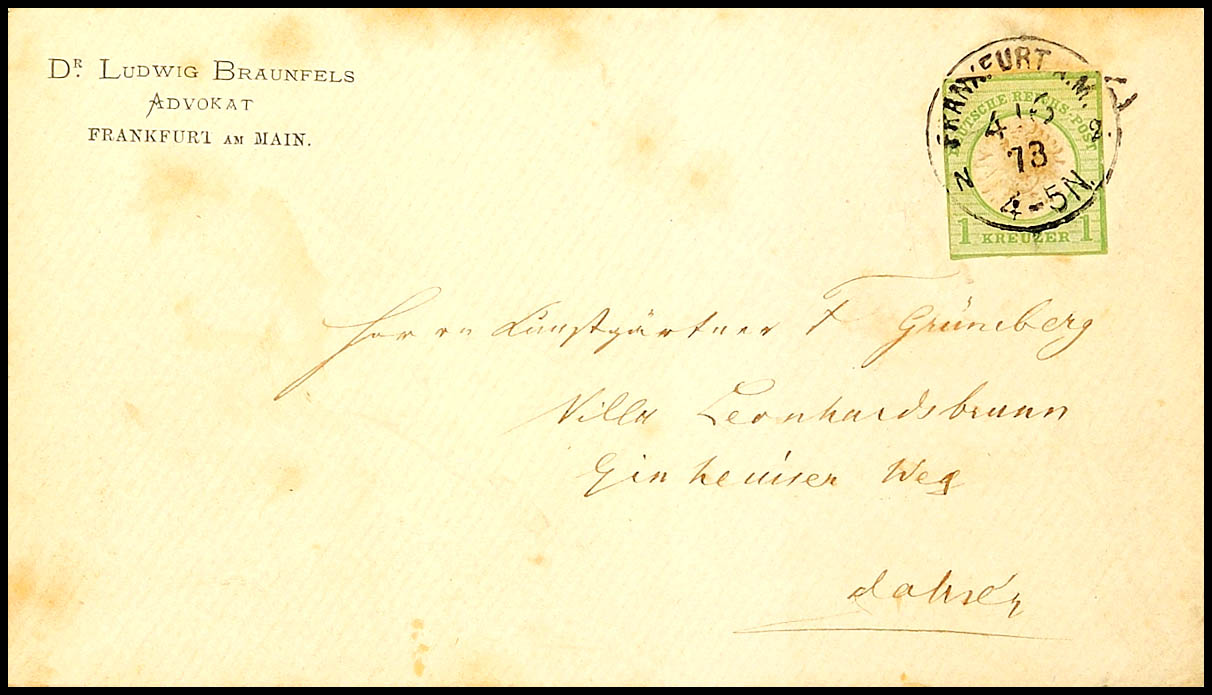 Dr. LUDWIG BRAUNFELS
ADVOKAT
FRANKFURT AM MAIN.
FRANKFURT A.M.
4
73
4-5N.
DEUTSCHE REICHS-POST
1 KREUZER 1
Herrn Kunstgärtner F Grüneberg
Villa Leonhardsbrunn
Ginheimer Weg
dahier